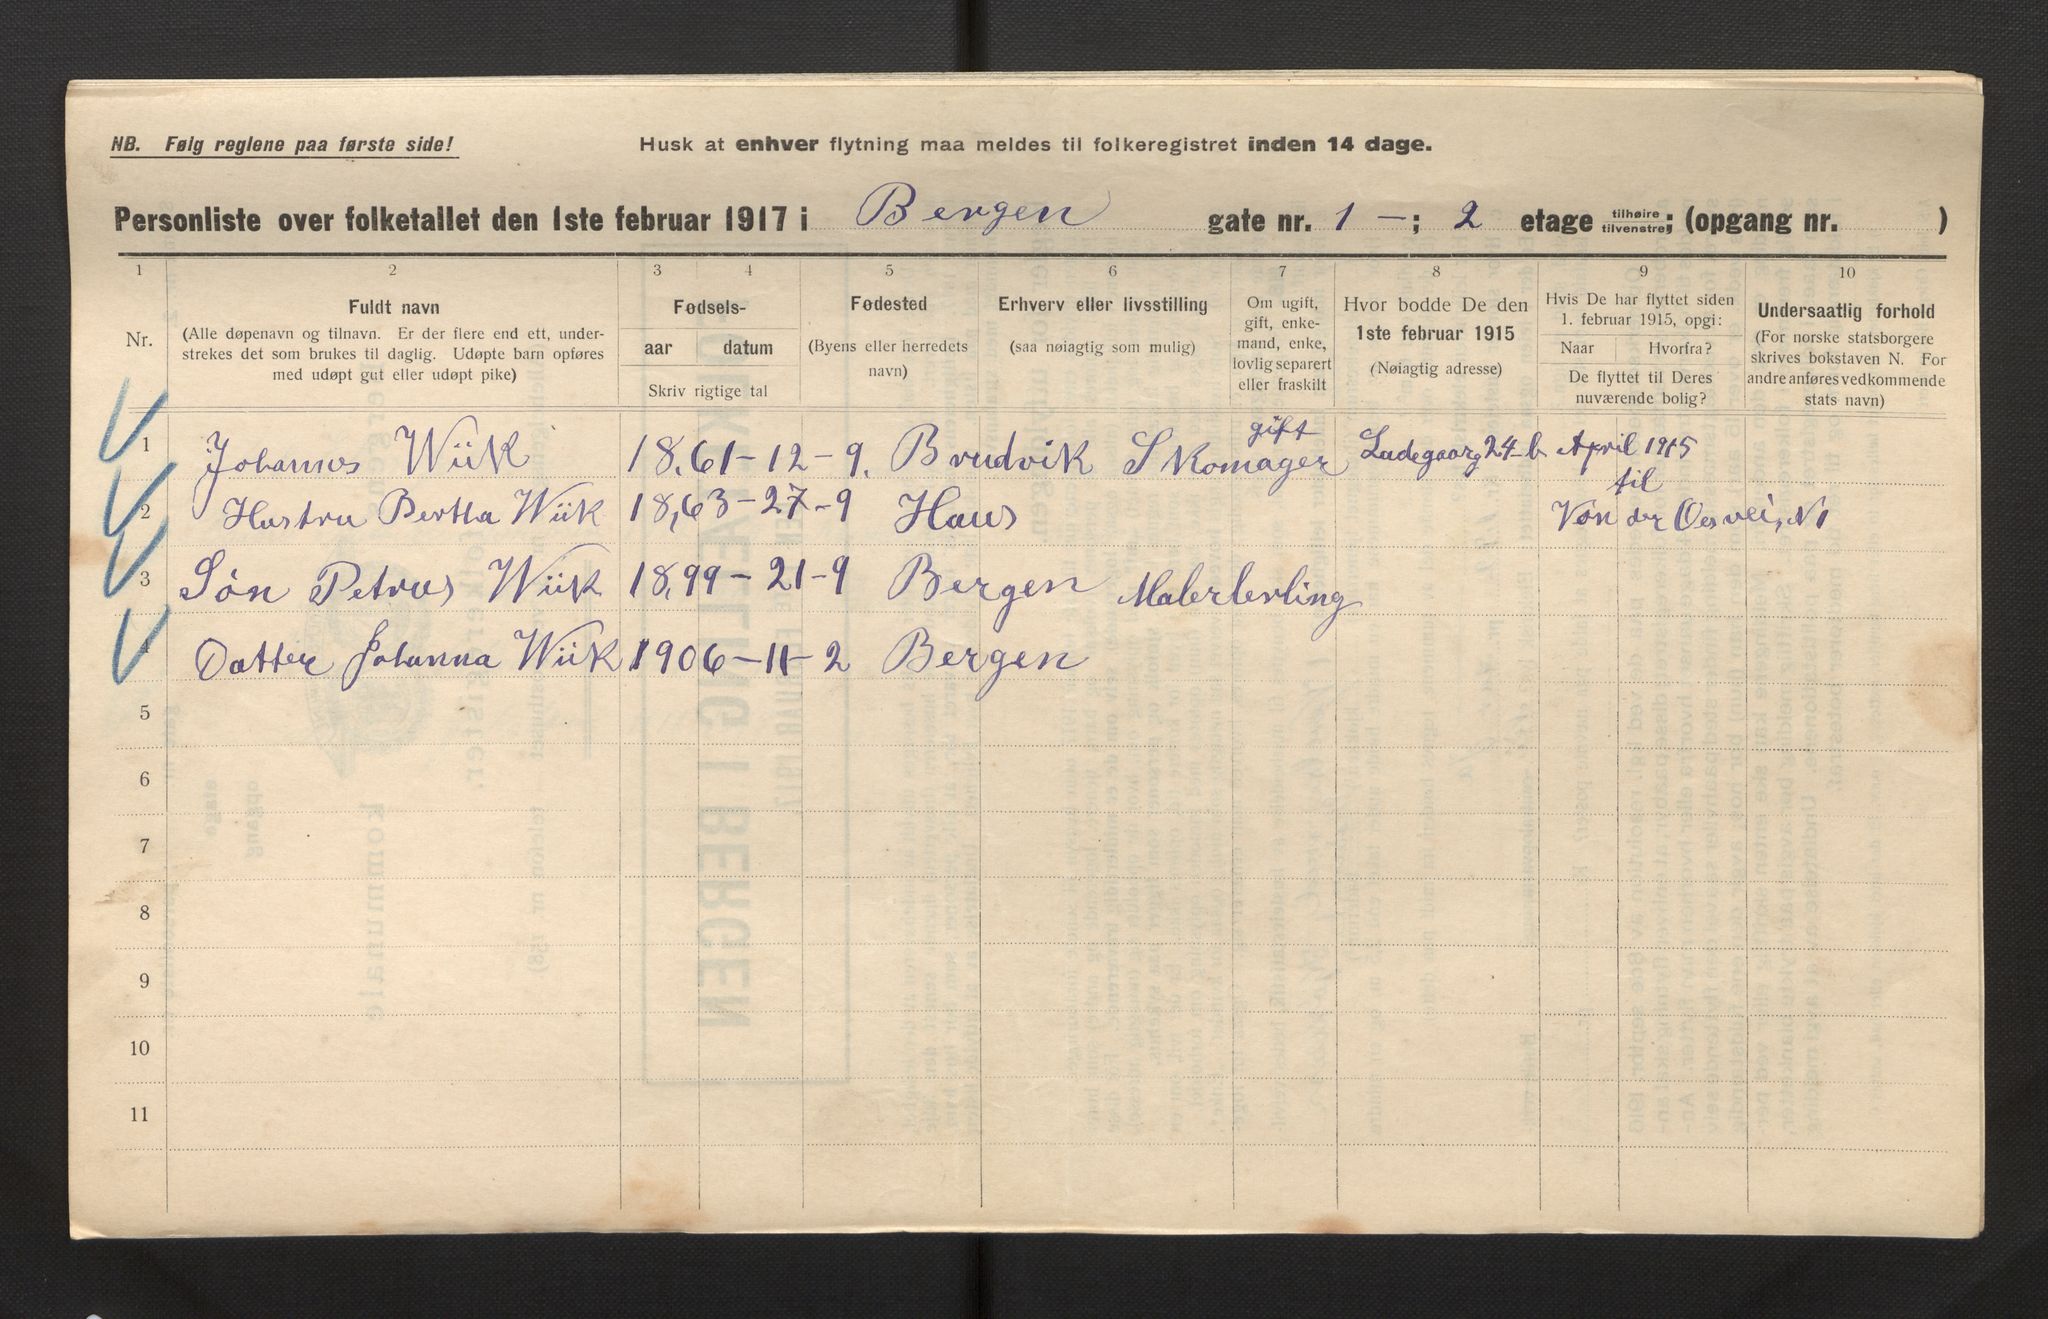 NB. Følg reglene paa første side!
Husk at enhver flytning maa meldes til folkeregistret inden 14 dage.
Personliste over folketallet den 1ste februar 1917 i Bergen gate nr. 1 - ; 2 etage tilhøire tilvenstre; (opgang nr. )
1 2 3 4 5 6 7 8 9 10
Nr.
Fuldt navn
(Alle døpenavn og tilnavn. Er der flere end ett, under-
strekes det som brukes til daglig. Udøpte barn opføres
med udøpt gut eller udøpt pike)
Fødsels-
aar datum
Skriv rigtige tal
Fødested
(Byens eller herredets
navn)
Erhverv eller livsstilling
(saa nøiagtig som mulig)
Om ugift,
gift, enke-
mand, enke,
lovlig separert
eller fraskilt
Hvor bodde De den
1ste februar 1915
(Nøiagtig adresse)
Hvis De har flyttet siden
1. februar 1915, opgi:
Naar Hvorfra?
De flyttet til Deres
nuværende bolig?
Undersaatlig forhold
(For norske statsborgere
skrives bokstaven N. For
andre anføres vedkommende
stats navn)
1 Johannes Wiik 18,61-12-9, Brudvik Skomager gift Ladegaarg 24-b April 1915
til
2 Hustru Bertha Wiik 18,63-27-9 Haus Von der vei, N 1
3 Søn Petrus Wiik 18,99-21-9 Bergen Malerlerling
4 Datter Johanna Wiik 1906-11-2 Bergen
5
6
7
8
9
10
11